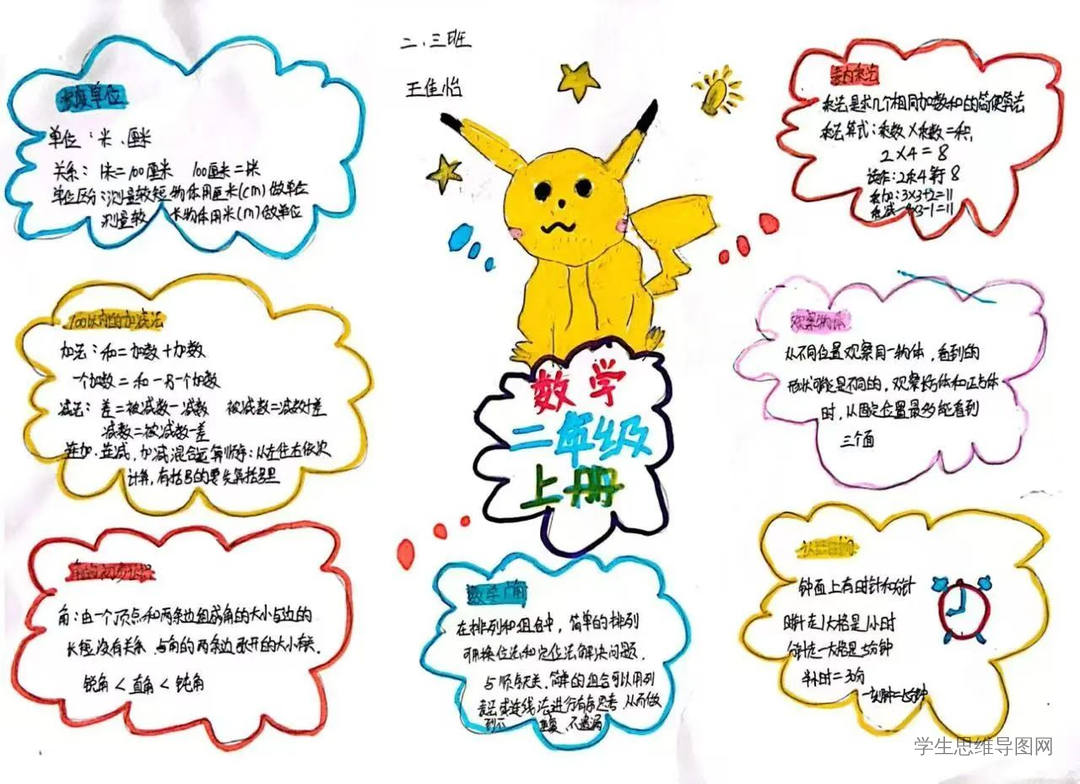 二、三班
王佳怡
长度单位
单位:米、厘米
关系: 1米=100厘米 100厘米=1米
单位区分:测量较短物体用厘米(cm)做单位
测量较 长物体用米(m)做单位
100以内的加减法
加法:和=加数+加数
一个加数=和-另一个加数
减法:差=被减数-减数 被减数=减数+差
减数=被减数-差
连加、连减,加减混合运算顺序:从左往右依次
计算,有括号的要先算括号里
角的初步认识
角:由一个顶点和两条边组成角的大小与边的
长短没有关系,与角的两条边张开的大小有关.
锐角<直角<钝角
数学
二年级
上册
数学广角
在排列和组合中,简单的排列
可用换位法和定位法解决问题.
与顺序无关,简单的组合可以用列
表法或连线法进行有序思考,从而做
到不 重复,不遗漏
表内乘法
乘法是求几个相同加数和的简便算法
乘法算式:乘数×乘数=积,
2×4=8
读作:2乘4等于8
乘加:3×3+2=11
乘减 3-1=11
观察物体
从不同位置观察同一物体,看到的
形状可能是不同的,观察长方体和正方体
时,从固定位置最多能看到
三个面
认识时间
钟面上有时针和分针
时针走1大格是1小时
分针走一大格是5分钟
半小时=30分
一刻钟=15分钟
学生思维导图网